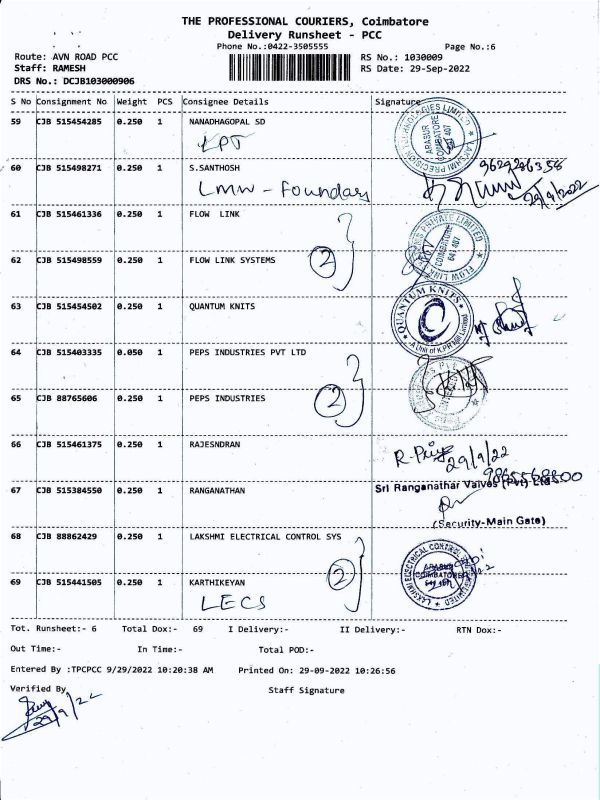 THE PROFESSIONAL COURIERS, Coimbatore
Delivery Runsheet - PCC
Phone No.:0422-3505555
Page No.:6
Route: AVN ROAD PCC
RS No.: 1030009
Staff: RAMESH
RS Date: 29-Sep-2022
DRS No.: DCJB103000906
S No Consignment No Weight PCS Consignee Details Signature
59 CJB 515454285 0.250 1 NANADHAGOPAL SD
LPT
60 CJB 515498271 0.250 1 S.SANTHOSH
9629286358
LMW - Foundary
29/9/2022
61 CJB 515461336 0.250 1 FLOW LINK
62 CJB 515498559 0.250 1 FLOW LINK SYSTEMS
2
COIMBATORE
641 407
63 CJB 515454502 0.250 1 QUANTUM KNITS
QUANTUM KNITS
64 CJB 515403335 0.050 1 PEPS INDUSTRIES PVT LTD
65 CJB 88765606 0.250 1 PEPS INDUSTRIES
2
66 CJB 515461375 0.250 1 RAJESNDRAN
29/9/22
67 CJB 515384550 0.250 1 RANGANATHAN
Sri Ranganathar Valves (Pvt) Ltd
(Security-Main Gate)
68 CJB 88862429 0.250 1 LAKSHMI ELECTRICAL CONTROL SYS
69 CJB 515441505 0.250 1 KARTHIKEYAN
2
LECS
Tot. Runsheet:- 6 Total Dox:- 69 I Delivery:- II Delivery:- RTN Dox:-
Out Time:- In Time:- Total POD:-
Entered By :TPCPCC 9/29/2022 10:20:38 AM Printed On: 29-09-2022 10:26:56
Verified By
Staff Signature
29/9/22